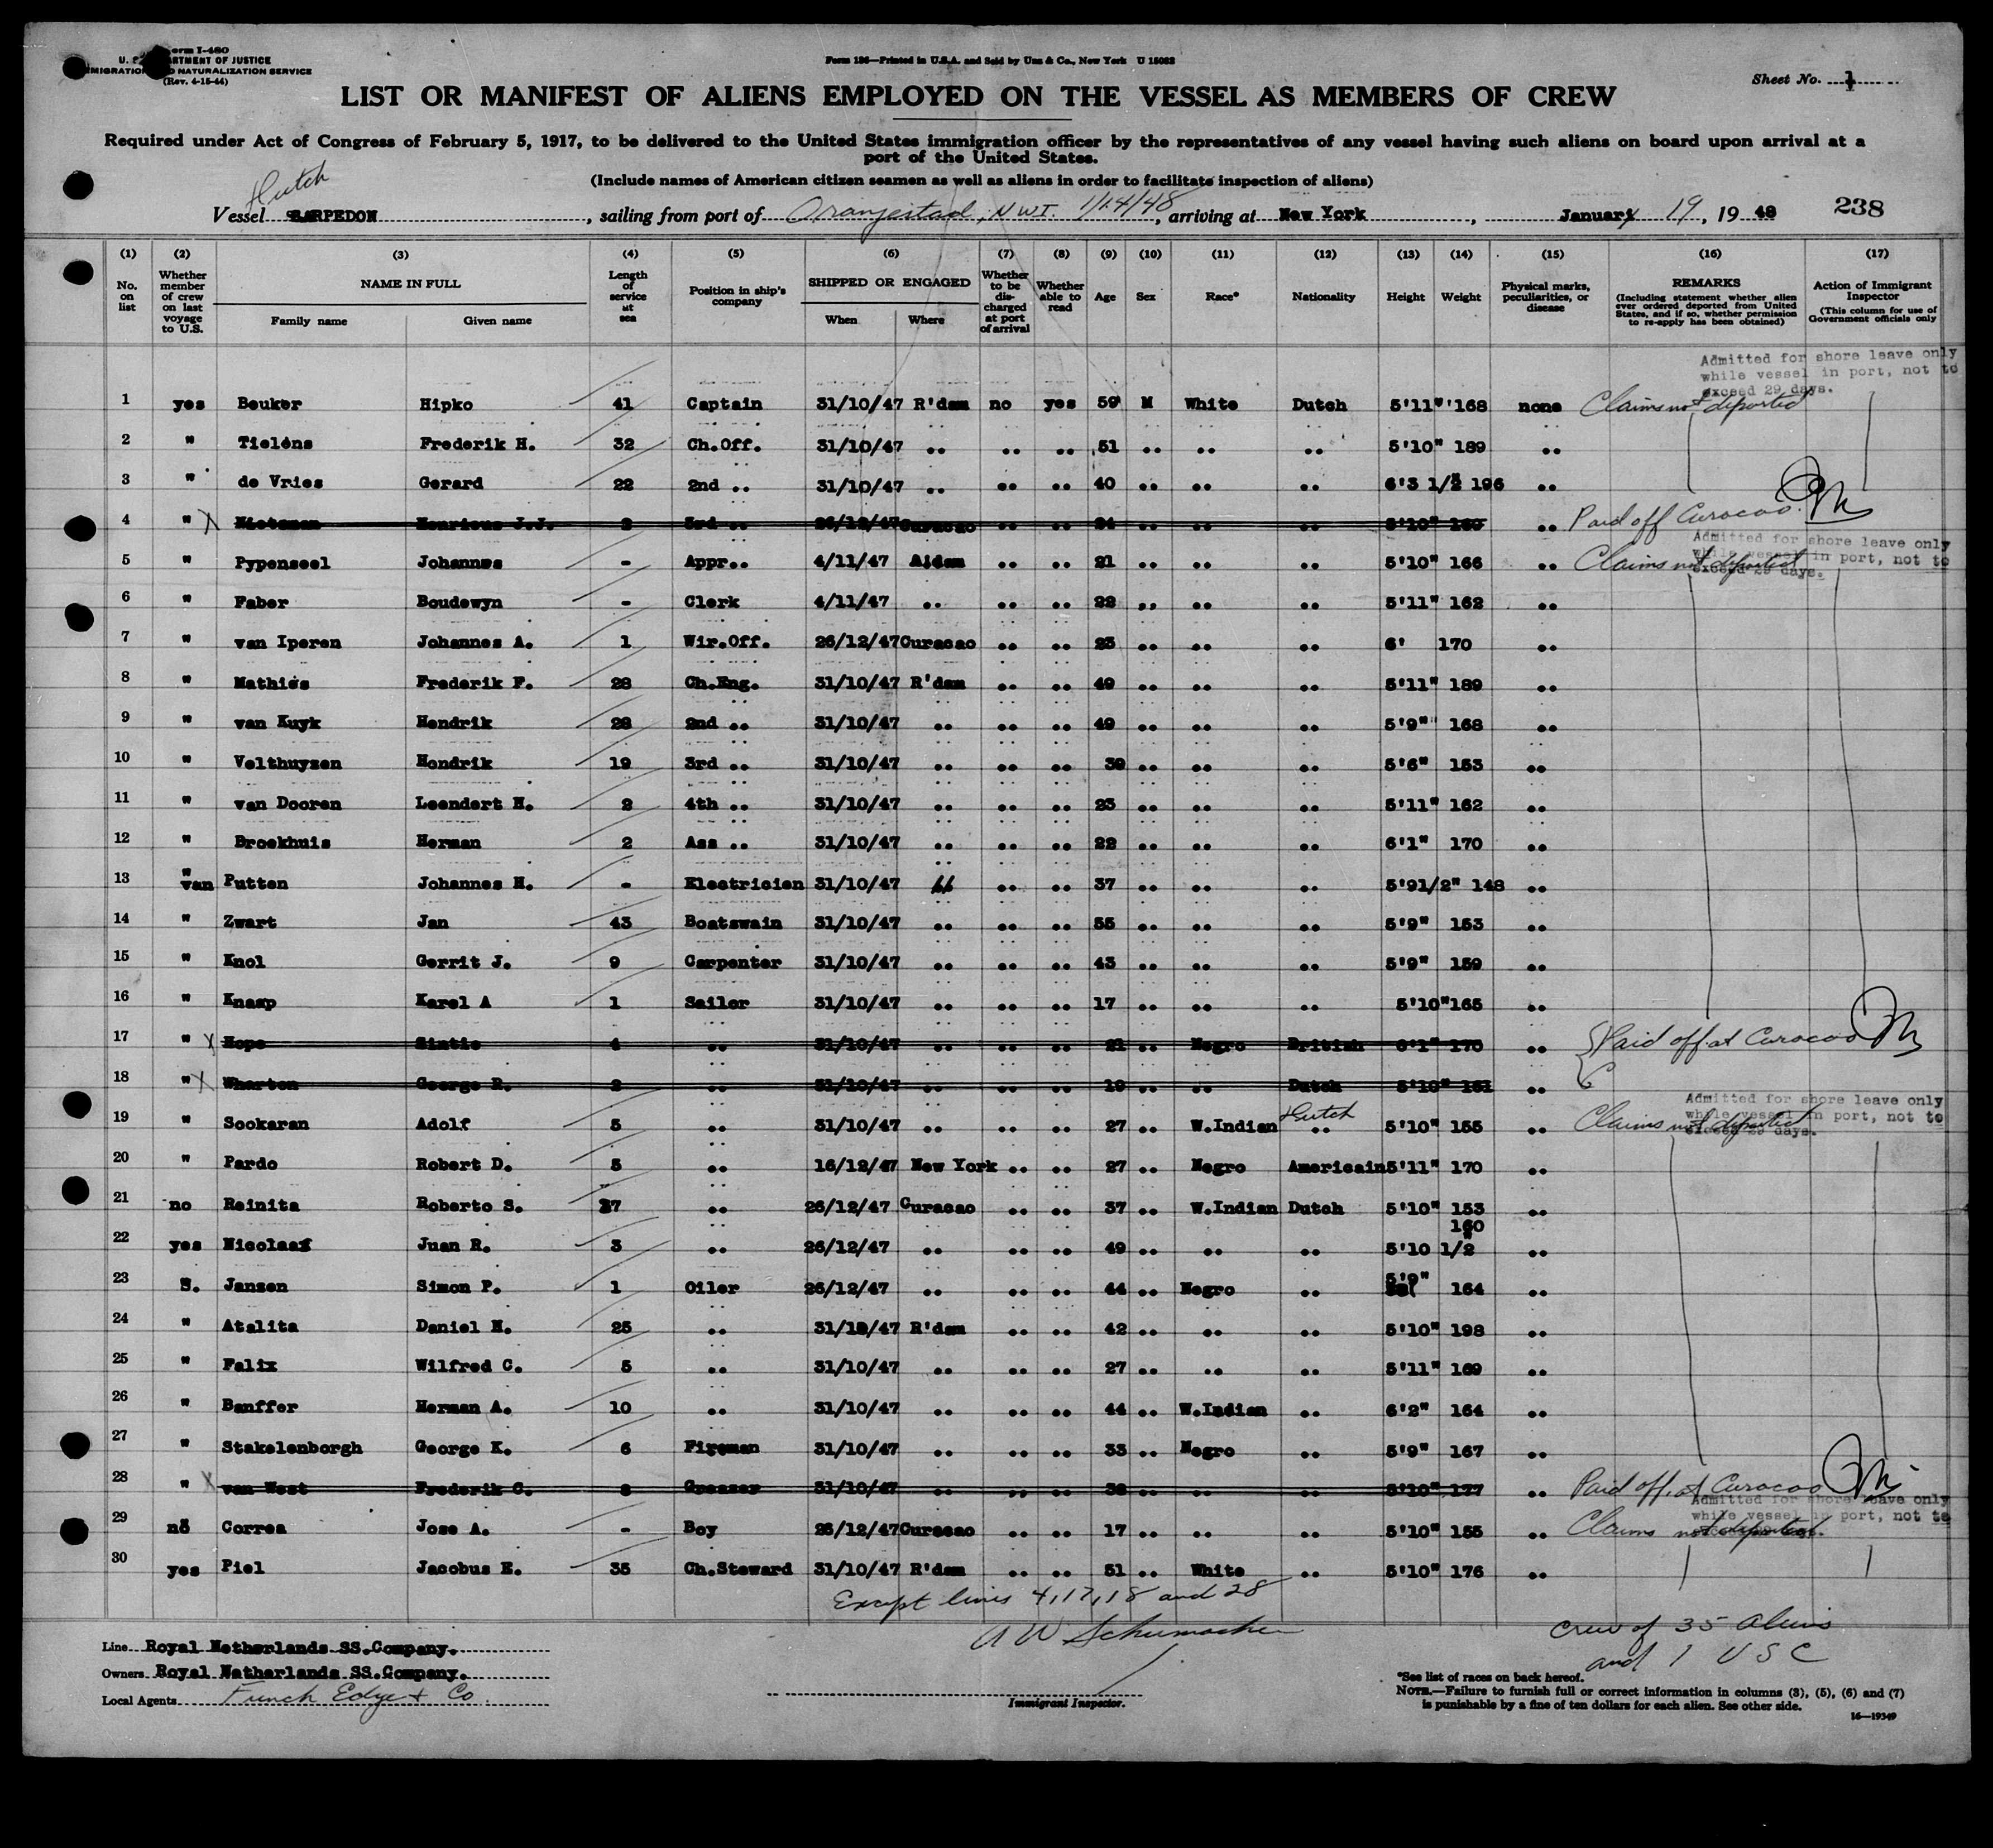 Form I-480
U. S. DEPARTMENT OF JUSTICE
IMMIGRATION AND NATURALIZATION SERVICE
(Rev. 4-15-44)
Form 186—Printed in U.S.A. and Sold by Unz & Co., New York U 15082
Sheet No. 1
LIST OR MANIFEST OF ALIENS EMPLOYED ON THE VESSEL AS MEMBERS OF CREW
Required under Act of Congress of February 5, 1917, to be delivered to the United States immigration officer by the representatives of any vessel having such aliens on board upon arrival at a
port of the United States.
(Include names of American citizen seamen as well as aliens in order to facilitate inspection of aliens)
Dutch
Vessel SARPEDON, sailing from port of Oranjestad, N.W.I. 1/14/48, arriving at New York, January 19, 1948 238
(1) (2) (3) (4) (5) (6) (7) (8) (9) (10) (11) (12) (13) (14) (15) (16) (17)
No. on list Whether member of crew on last voyage to U.S. NAME IN FULL Family name Given name Length of service at sea Position in ship's company SHIPPED OR ENGAGED When Where Whether to be discharged at port of arrival Whether able to read Age Sex Race* Nationality Height Weight Physical marks, peculiarities, or disease REMARKS (Including statement whether alien ever ordered deported from United States, and if so, whether permission to re-apply has been obtained) Action of Immigrant Inspector (This column for use of Government officials only
Admitted for shore leave only
while vessel in port, not to
exceed 29 days.
1 yes Beuker Hipko 41 Captain 31/10/47 R'dam no yes 59 M White Dutch 5'11" 168 none Claims not deported
2 " Tielens Frederik H. 32 Ch.Off. 31/10/47 .. .. .. 51 .. .. .. 5'10" 189 ..
3 " de Vries Gerard 22 2nd .. 31/10/47 .. .. .. 40 .. .. .. 6'3 1/2" 196 ..
4 " X Henricus J.J. 2 3rd .. 26/12/47 Curacao .. .. .. .. .. 5'10" .. Paid off Curacao.
Admitted for shore leave only
while vessel in port, not to
exceed 29 days.
5 " Pypenseel Johannes - Appr.. 4/11/47 A'dam .. .. 21 .. .. .. 5'10" 166 .. Claims not deported
6 " Faber Boudewyn - Clerk 4/11/47 .. .. .. 22 .. .. .. 5'11" 162 ..
7 " van Iperen Johannes A. 1 Wir.Off. 26/12/47 Curacao .. .. 23 .. .. .. 6' 170 ..
8 " Mathies Frederik F. 28 Ch.Eng. 31/10/47 R'dam .. .. 49 .. .. .. 5'11" 189 ..
9 " van Kuyk Hendrik 28 2nd .. 31/10/47 .. .. .. 49 .. .. .. 5'9" 168 ..
10 " Velthuyzen Hendrik 19 3rd .. 31/10/47 .. .. .. 39 .. .. .. 5'6" 153 ..
11 " van Dooren Leendert H. 2 4th .. 31/10/47 .. .. .. 23 .. .. .. 5'11" 162 ..
12 " Broekhuis Herman 2 Ass .. 31/10/47 .. .. .. 22 .. .. .. 6'1" 170 ..
13 " van Putten Johannes H. - Electricien 31/10/47 " .. .. 37 .. .. .. 5'91/2" 148 ..
14 " Zwart Jan 43 Boatswain 31/10/47 .. .. .. 55 .. .. .. 5'9" 153 ..
15 " Knol Gerrit J. 9 Carpenter 31/10/47 .. .. .. 43 .. .. .. 5'9" 159 ..
16 " Knaap Karel A 1 Sailor 31/10/47 .. .. .. 17 .. .. .. 5'10" 165 ..
17 " X Hope 4 .. 31/10/47 .. .. .. 21 .. Negro British 6'1" 170 .. Paid off at Curacao
18 " X Wharton George R. 2 .. 31/10/47 .. .. .. 19 .. .. Dutch 5'10" 151 ..
Admitted for shore leave only
while vessel in port, not to
exceed 29 days.
19 " Sookaran Adolf 5 .. 31/10/47 .. .. .. 27 .. W.Indian Dutch .. 5'10" 155 .. Claims not deported
20 " Pardo Robert D. 5 .. 16/12/47 New York .. .. 27 .. Negro Americain 5'11" 170 ..
21 no Reinita Roberto S. 27 .. 26/12/47 Curacao .. .. 37 .. W.Indian Dutch 5'10" 153 ..
22 yes Nicolaas Juan R. 3 .. 26/12/47 .. .. .. 49 .. .. .. 5'10 1/2" 160 ..
23 ". Jansen Simon P. 1 Oiler 26/12/47 .. .. .. 44 .. Negro .. 5'9" 164 ..
24 " Atalita Daniel H. 25 .. 31/10/47 R'dam .. .. 42 .. .. .. 5'10" 198 ..
25 " Felix Wilfred C. 5 .. 31/10/47 .. .. .. 27 .. .. .. 5'11" 169 ..
26 " Banffer Herman A. 10 .. 31/10/47 .. .. .. 44 .. W.Indian .. 6'2" 164 ..
27 " Stakelenborgh George K. 6 Fireman 31/10/47 .. .. .. 33 .. Negro .. 5'9" 167 ..
28 " X van West Frederik C. 8 Greaser 31/10/47 .. .. .. 38 .. .. .. 5'10" 177 .. Paid off at Curacao
Admitted for shore leave only
while vessel in port, not to
exceed 29 days.
29 no Correa Jose A. - Boy 26/12/47 Curacao .. .. 17 .. .. .. 5'10" 155 .. Claims not deported
30 yes Piel Jacobus E. 35 Ch.Steward 31/10/47 R'dam .. .. 51 .. White .. 5'10" 176 ..
Except lines 4, 17, 18 and 28
A W Schumacher
crew of 35 aliens
and 1 USC
Line Royal Netherlands SS.Company.
Owners Royal Netherlands SS.Company.
Local Agents Funch Edye & Co
Immigrant Inspector.
*See list of races on back hereof.
NOTE.—Failure to furnish full or correct information in columns (3), (5), (6) and (7)
is punishable by a fine of ten dollars for each alien. See other side.
16—19349